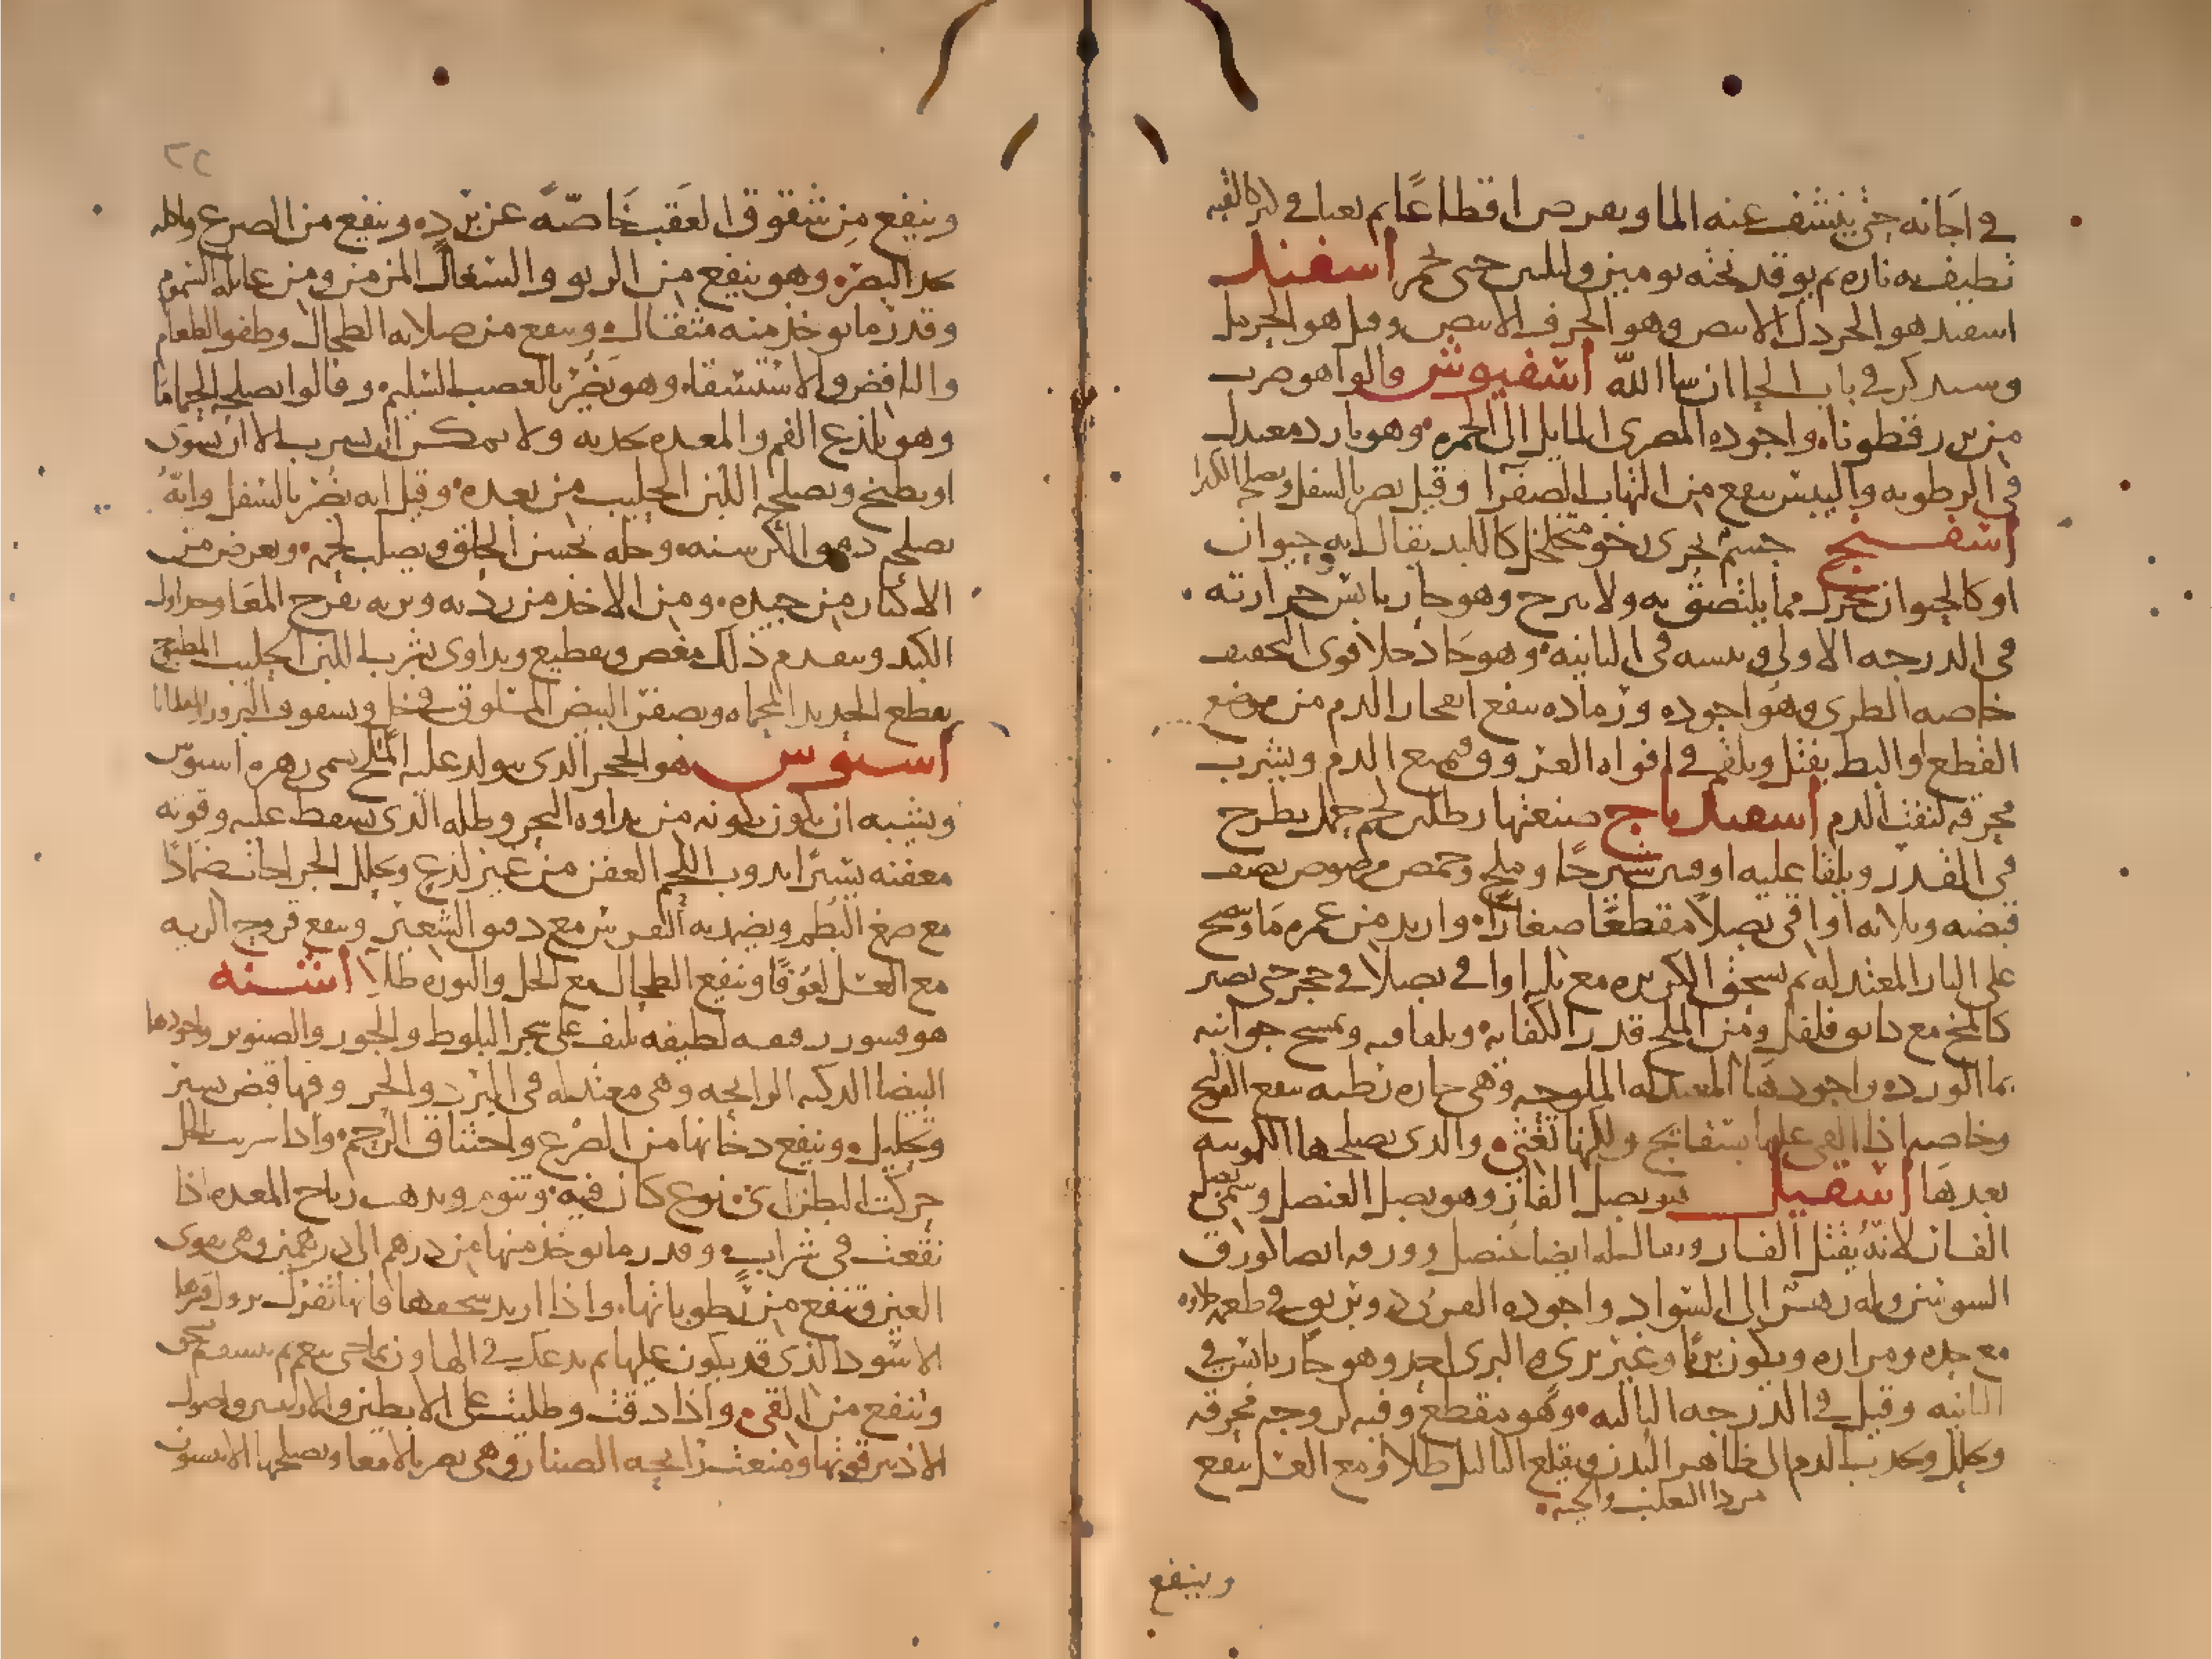 في اجانه حتى ينشف عنه الما ويقرص اقطاعًا ثم يعبا في
نظيفه ناره ثم يوقد تحته يومين وليلتين حتى تحمر اسفند
اسفند هو الخردل الابيض وهو الحرف الابيض وقيل هو الحرمل
وسيذكر في باب الحا ان شا الله اسفيوش قالوا هو ضرب
من بزر قطونا واجوده المصرى المايل الى الحمره وهو بارد معتدل
فى الرطوبه واليبس ينفع من التهاب الصفرا وقيل يضر بالسفل ويصلحه الكثيرا
اسفنج جسم بحرى رخو متخلخل كاللبد يقال انه حيوان
او كالحيوان يتحرك مما يلتصق به ولا يبرح وهو حار يابس حرارته
فى الدرجه الاولى ويبسه فى الثانيه وهو حاد جلا قوى التجفيف
خاصه الطرى وهو اجوده ورماده ينفع انفجار الدم من موضع
القطع او البط يفتل ويلقم في افواه العروق فيمنع الدم ويشرب
محرقه لنفث الدم اسفيدباج صنعتها رطلين لحم حمل يطرح
فى القدر ويلقا عليه اوقيتين شيرجًا وملح وحمص مرضوض نصف
قبضه وثلاثه اواقى بصلاً مقطعًا صغارًا وازيد من غمره مَا وتسج
على النار المعتدله ثم يسحق الكزبره مع ثلث اواقى بصلا في حجر حتى يصير
كالمخ مع دانق فلفل ومن الملح قدر الكفايه ويلقا فيه وتمسح جوانبه
بما الورد واجودها المعتدله الملوحه وهى حاره رطبه تنفع القولنج
وخاصه اذا القى عليها بسفايج ولكنها تغثى والذى يصلحها الكمونيه
بعدها اسقيل هو بصل الفار وهو بصل العنصل وسمى بصل
الفار لانه يقتل الفار ويقال له ايضا عُنصل وورقه ايضا كورق
السوسن وله زهر الى السواد واجوده
مع حده ومراره ويكون بريًا وغير برى والبرى احد وهو حار يابس في
الثانيه وقيل في الدرجه الثالثه وهو مقطع وفيه لزوجه محرقه
وتحليل وجذب الدم الى ظاهر البدن ويقلع الثاليل طلا ومع العسل ينفع
من دا الثعلب والحيه
وينفع
وينفع من شقوق العقب خَاصّهً عن برده وينفع من الصرع واكله
يحد البصر وهو ينفع من الربو والسُعال المزمن ومن عايله السموم
وقدر ما يوخذ منه مثقال وينفع من صلابه الطحال وطفو الطعام
والنافض والاستسقاء وهو يضر بالعصب السليم وقالوا يصلحه الحماما
وهو يلذع الفم والمعده بحدته ولا يمكن ان يشرب الا ان يشوى
او يطبخ ويصلحه اللبن الحليب من بعده وقيل انه يضر بالسفل وانه
يصلحه دقيق الكرسنه وخله يحسن الحلق ويصلب لحمه ويعرض من
الاكثار من جيده ومن الاخذ من رديه وبريه تقرح المعا
الكبد ويتقدم ذلك مغص وتقطيع ويداوى بشرب اللبن الحليب المطبوخ
بقطع الحديد المحماه وبصفر البيض المسلوق في خل وبسفوف البزور
اسيوس هو الحجر الذى يتولد عليه الملح يسمى زهره اسيوس
ويشبه ان يكون تكونه من نداوه البحر وطله الذى يسقط عليه وقوته
معفنه يسيرًا يذوب اللحم العفن من غير لذع ويحلل الخراجات ضمادًا
مع صمغ البطم ويضمد به النقرس مع دقيق الشعير وينفع قروح الريه
مع العسل لعوقًا وينفع الطحال مع الخل والنوره طلا اشنه
هو قشور رقيقه لطيفه تلتف على شجر البلوط والجوز والصنوبر واجودها
البيضا الذكيه الرايحه وهى معتدله فى البرد والحر وفيها قبض يسير
وتحليل وينفع دخانها من الصرع واختناق الرحم واذا شربت بالخل
حركت البطن اى نوع كان فيه وتنوم ويذهب رياح المعده اذا
نقعت فى شراب وقدر ما يوخذ منها من درهم الى درهمين وهى تقوى
العين وتنفع من رطوباتها واذا اريد سحقها فانها تفرك يزول قشرها
الاسود الذى قد يكون عليها ثم يدعك في الهاون بما حتى ينعم ثم ينشف
وتنفع من القى واذا دقت وطليت على الابطين والاربيتين واصول
الاذنين قوتها ومنعت رايحه الصنان وهى تضر بالامعا ويصلحها الانيسون